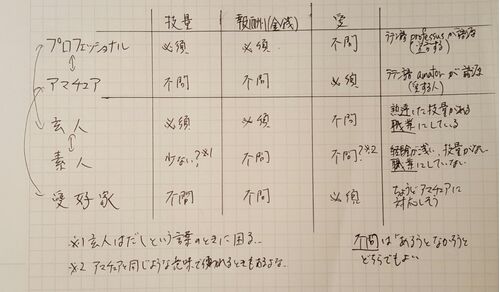 技量 報酬(金銭) 愛
プロフェッショナル 必須 必須 不問 ラテン語 professus が語源
アマチュア 不問 不問 必須 ラテン語 amator が語源
(愛する人)
玄人 必須 必須 不問 熟達した技量がある
職業にしている
素人 少ない?※1 不問 不問?※2 経験が浅い、技量がない
職業にしていない
愛好家 不問 不問 必須 ちょうどアマチュアに
対応しそう
※1 玄人はだしという言葉のときに困る…
※2 アマチュアと同じような意味で使われるときもあるよな…
不問は「あろうとなかろうと
どちらでもよい